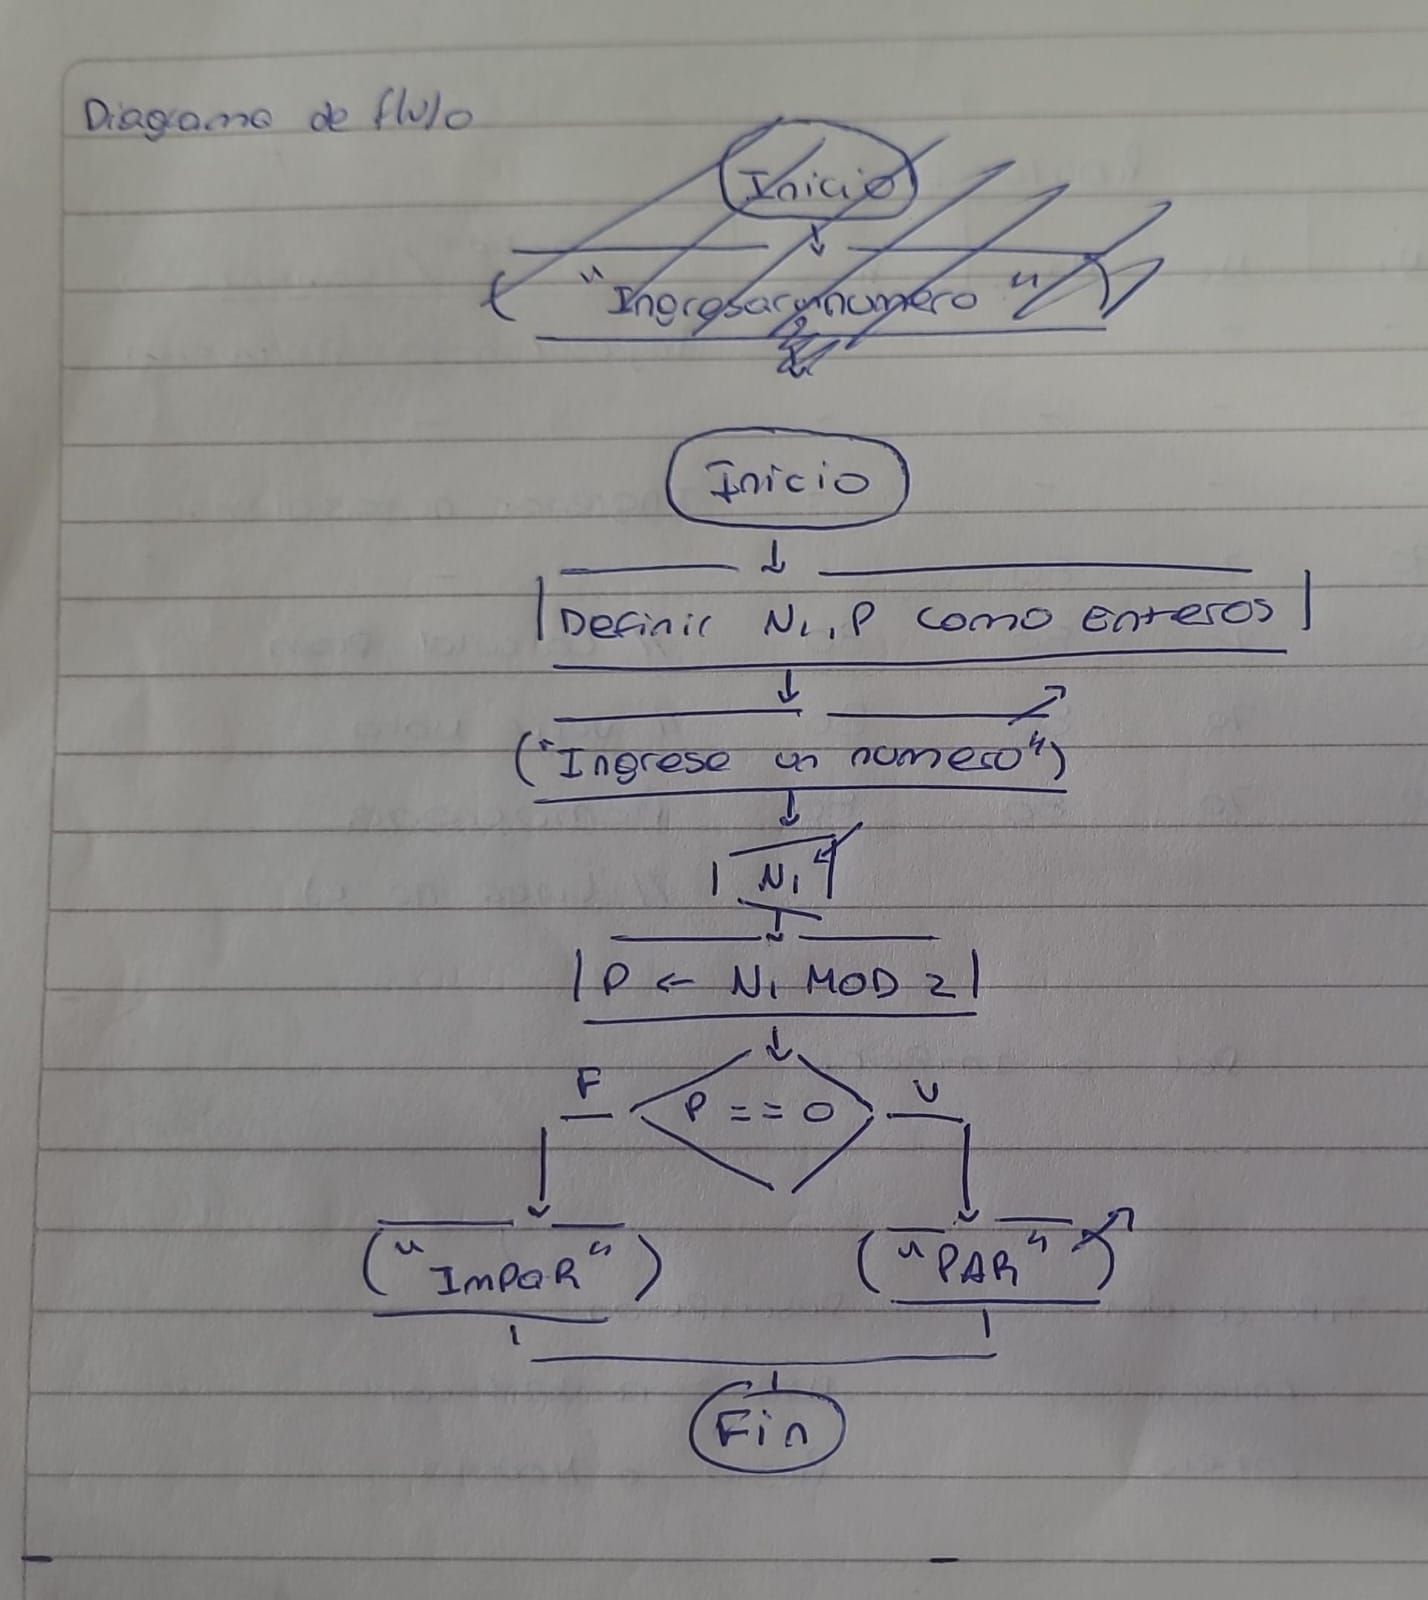 Diagrama de flujo
Inicio
"Ingresar un numero"
Inicio
Definir N1, P como Enteros
("Ingrese un numero")
N1
P ← N1 MOD 2
F
V
P == 0
("ImPaR")
("PAR")
Fin